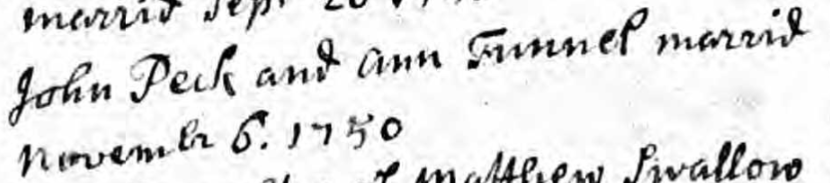 marrid Sep. 20
John Peck and Ann Funnel marrid
Novembr 6. 1750
Matthew Swallow